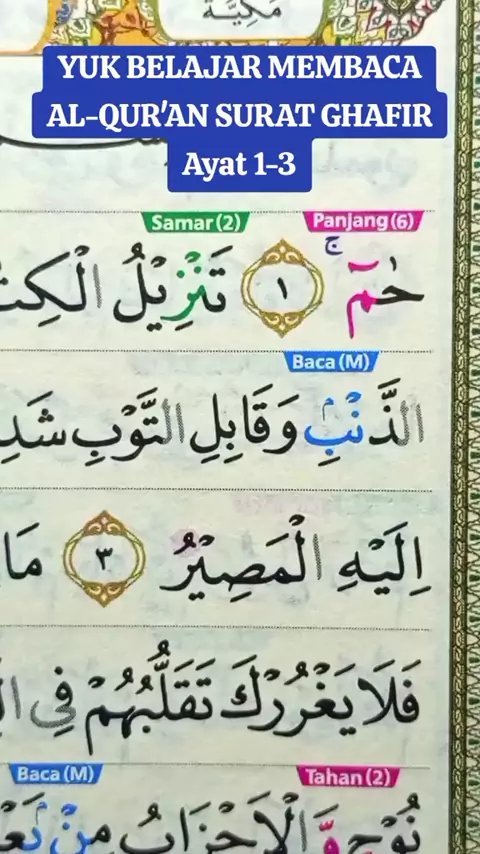 مَكِّيَّة
YUK BELAJAR MEMBACA
AL-QUR'AN SURAT GHAFIR
Ayat 1-3
Samar (2) Panjang (6)
حٰمۤ ۚ ١ تَنْزِيْلُ
Baca (M)
الذَّنْۢبِ وَقَابِلِ التَّوْبِ
اِلَيْهِ الْمَصِيْرُ ٣ مَا
فَلَا يَغْرُرْكَ تَقَلُّبُهُمْ فِى
Baca (M) Tahan (2)
نُوْحٍ وَّالْاَحْزَابُ مِنْۢ